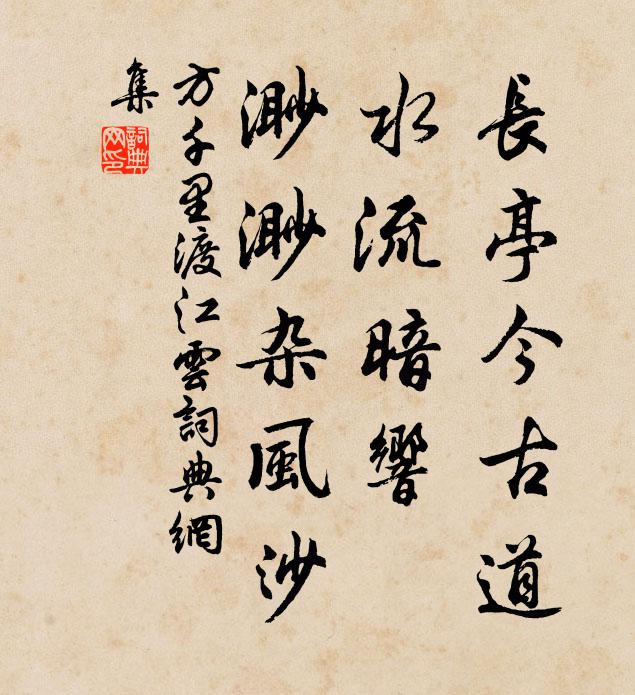 長亭今古道
水流暗響
渺渺杂風沙
方千里渡江雲詞典網
集
詞典
网印